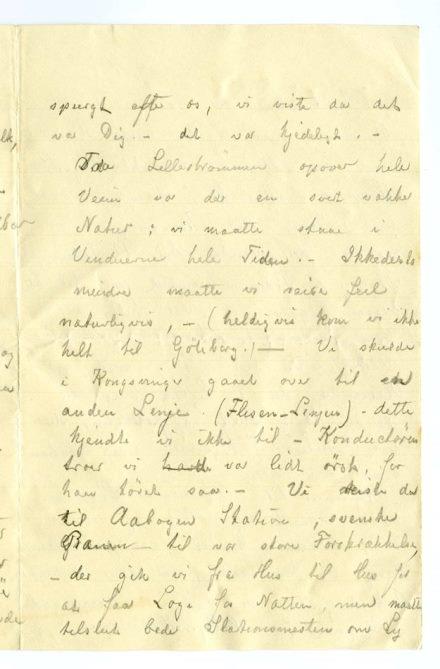 spurgt efter os, vi viste da det
var Dig. - det var kjedeligt. -
Fra Lillestrømmen opover hele
Veien var der en svert vakker
Natur; vi maatte staae i
Vinduerne hele Tiden. - Ikkedesto
mindre maatte vi reise feil
naturligvis, - (heldigvis kom vi ikke
helt til Gøteborg.) - Vi skulde
i Kongsvinger gaaet over til en
anden Linje. (Flisen-Linjen) - dette
kjendte vi ikke til - Konductøren
troer vi hadde var lidt ørsk, for
han saa. - Vi reiste da
til Aabogen Station, svenske
Grænsen til vor store Forskrækkelse,
- der gik vi fra Hus til Hus for
at faa Logi for Natten, men maatte
tilslut bede Stationsmesten om Ly
og